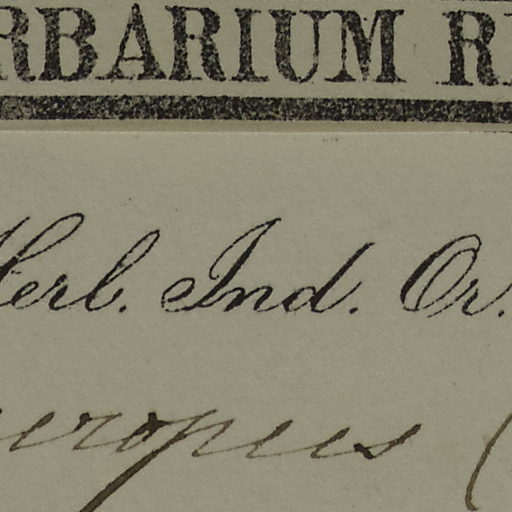 RBARIUM R
Herb. Ind. Or.